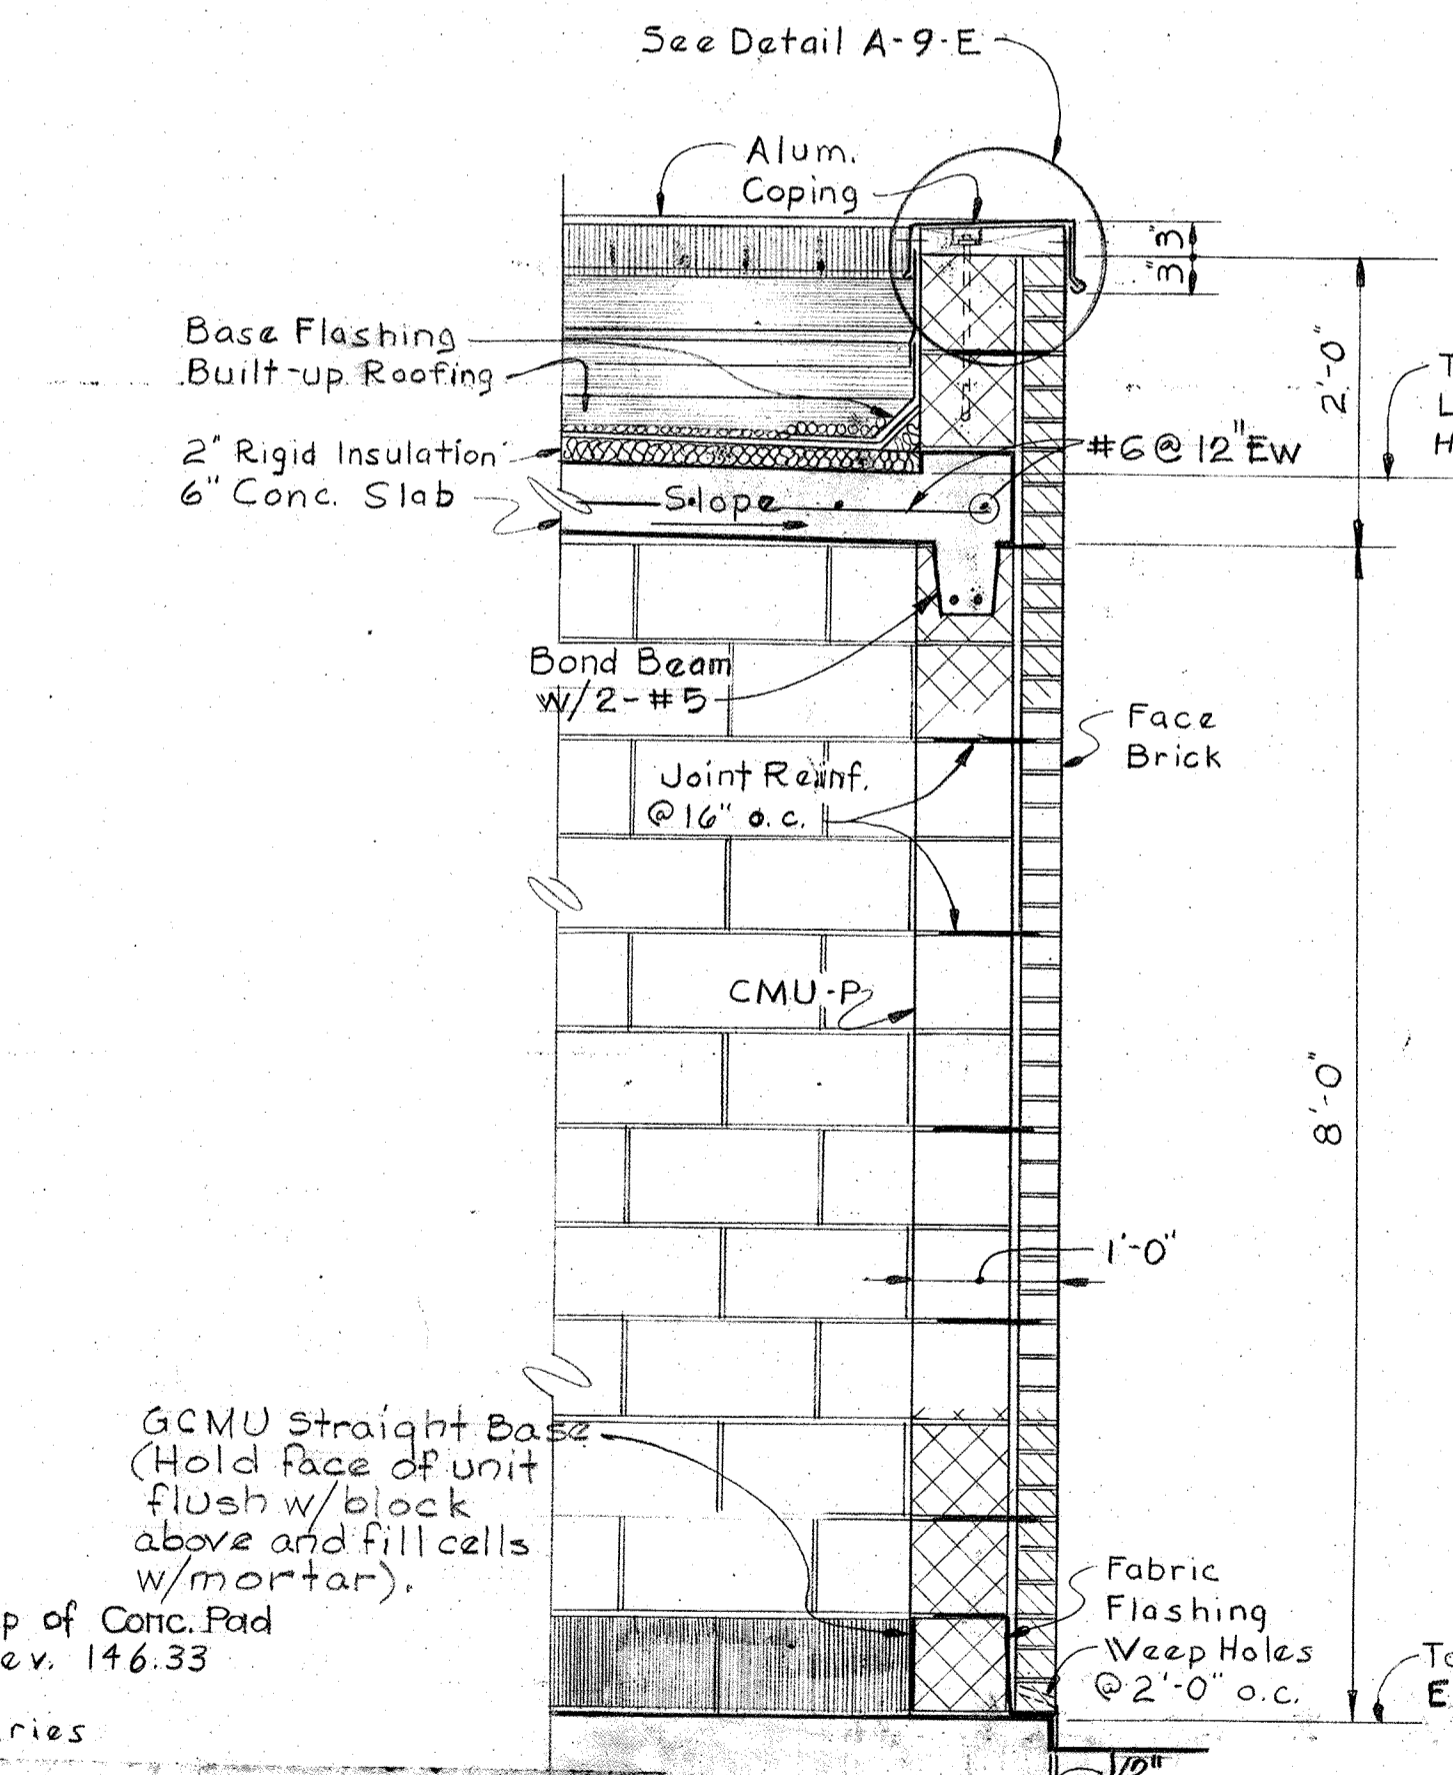 See Detail A-9-E
Alum.
Coping
3"
3"
Base Flashing
Built-up Roofing
2" Rigid Insulation
6" Conc. Slab
Slope
#6 @ 12" EW
2'-0"
T
L
H
Bond Beam
w/2-#5
Face
Brick
Joint Reinf.
@ 16" o.c.
CMU-P
8'-0"
1'-0"
GCMU Straight Base
(Hold face of unit
flush w/block
above and fill cells
w/mortar).
p of Conc. Pad
ev. 146.33
ries
Fabric
Flashing
Weep Holes
@ 2'-0" o.c.
To
E